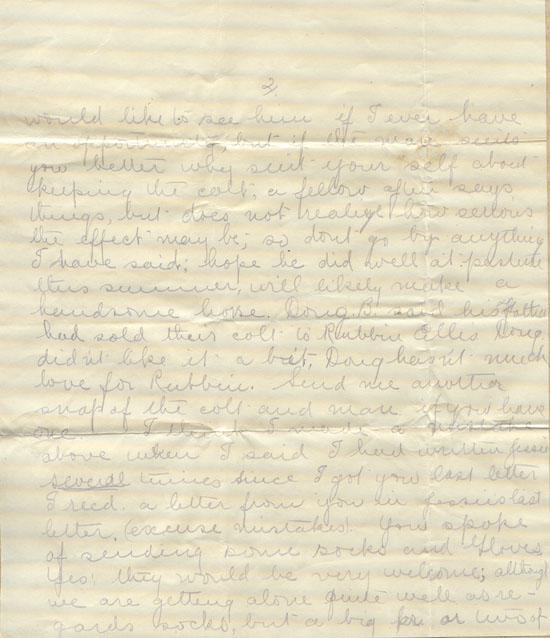 2
would like to see him if I ever have
an opportunity, but if the mare suits
you better why suit your self about
keeping the colt, a fellow often says
things, but does not realize how serious
the effect may be, so dont go by anything
I have said; hope he did well at pasture
this summer, will likely make a
handsome horse. Doug B. said his father
had sold their colt to Rubbin Ellis Doug
didn't like it a bit, Doug hasn't much
love for Rubbin. Send me another
snap of the colt and mare if you have
one. I think I made a mistake
above when I said I had written Jessie
several times since I got your last letter
I recd. a letter from you in Jessies last
letter, (excuse mistakes). You spoke
of sending some socks and gloves
yes, they would be very welcome; although
we are getting alone quite well as re-
gards socks, but a big pr. or two of